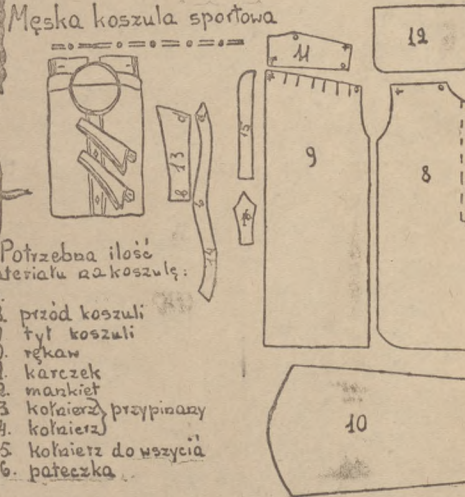 Męska koszula sportowa
11
12
13
15
9
8
16
14
Potrzebna ilość
ateriału na koszulę:
8. przód koszuli
9 tył koszuli
0. rękaw
1. karczek
2. mankiet
3 kołnierz } przypinany
4. kołnierz
5. kołnierz do wszycia
6. pateczka
10